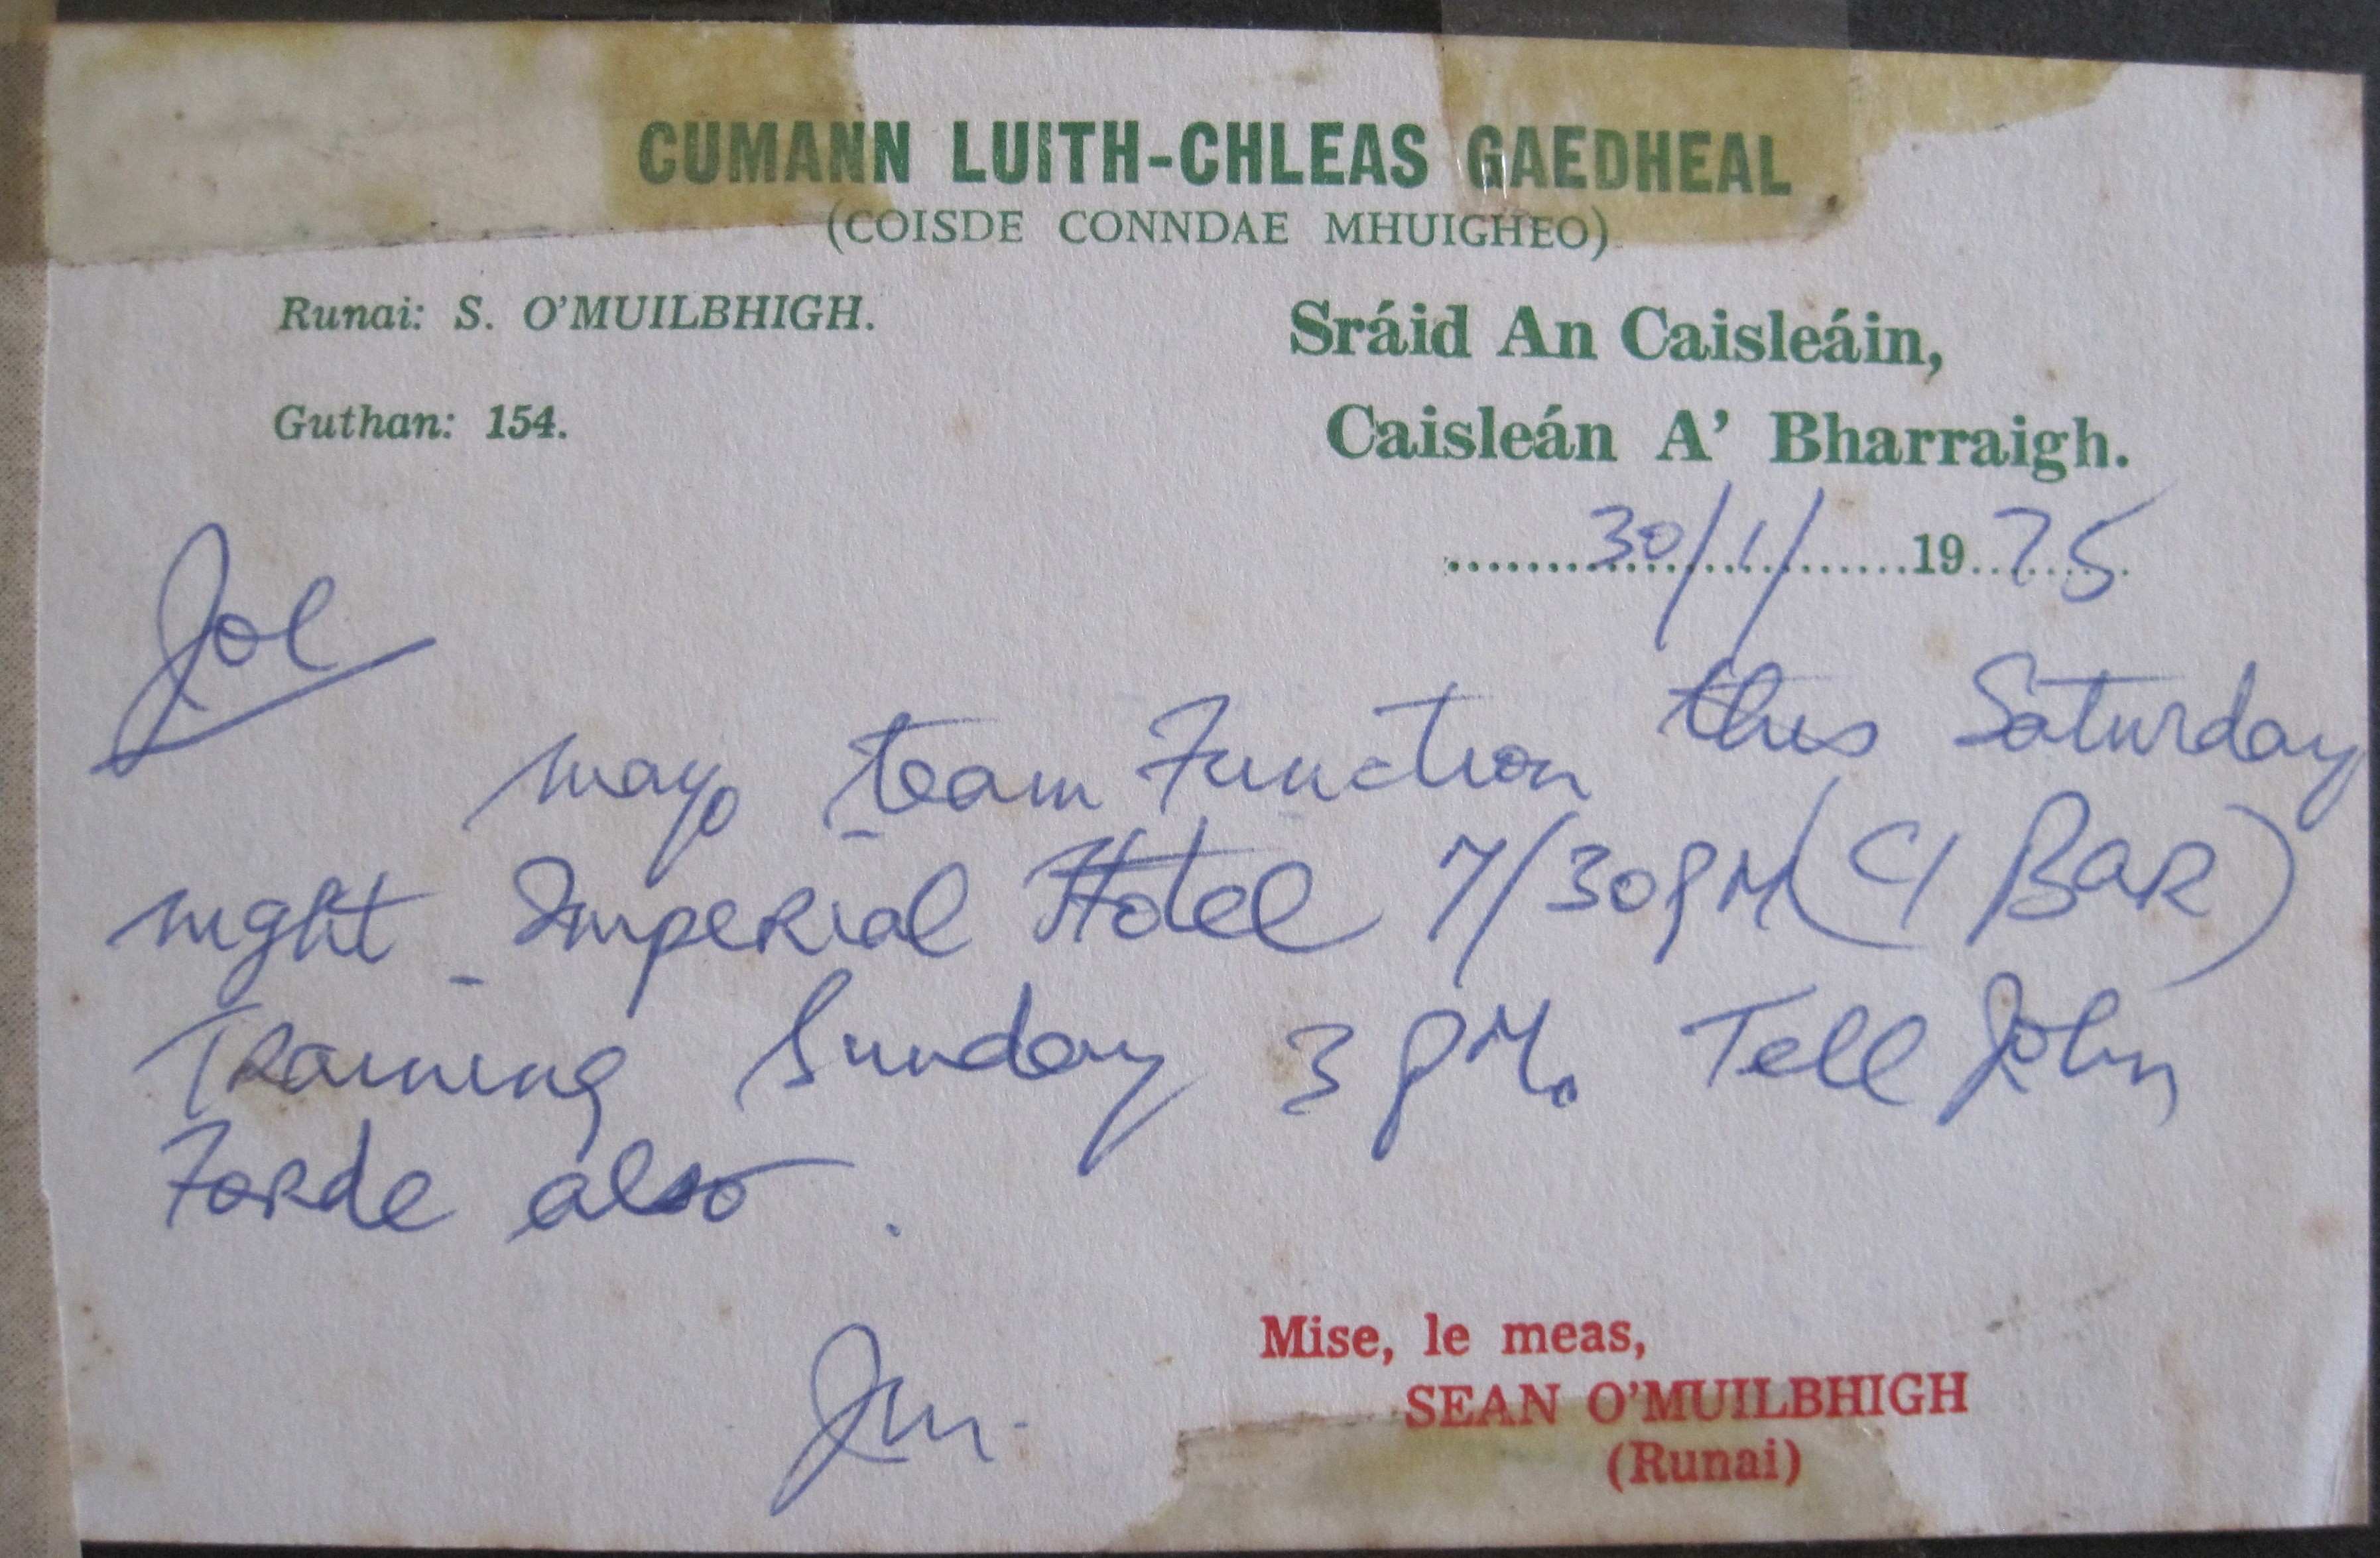 CUMANN LUITH-CHLEAS GAEDHEAL
(COISDE CONNDAE MHUIGHEO)
Runai: S. O'MUILBHIGH.
Guthan: 154.
Sráid An Caisleáin,
Caisleán A' Bharraigh.
30/1/ 19 75
Joe
Mayo team Function this Saturday
night Imperial Hotel 7/30 PM ( BAR)
Training Sunday 3 PM. Tell John
Forde also.
Mise, le meas,
SEAN O'MUILBHIGH
(Runai)